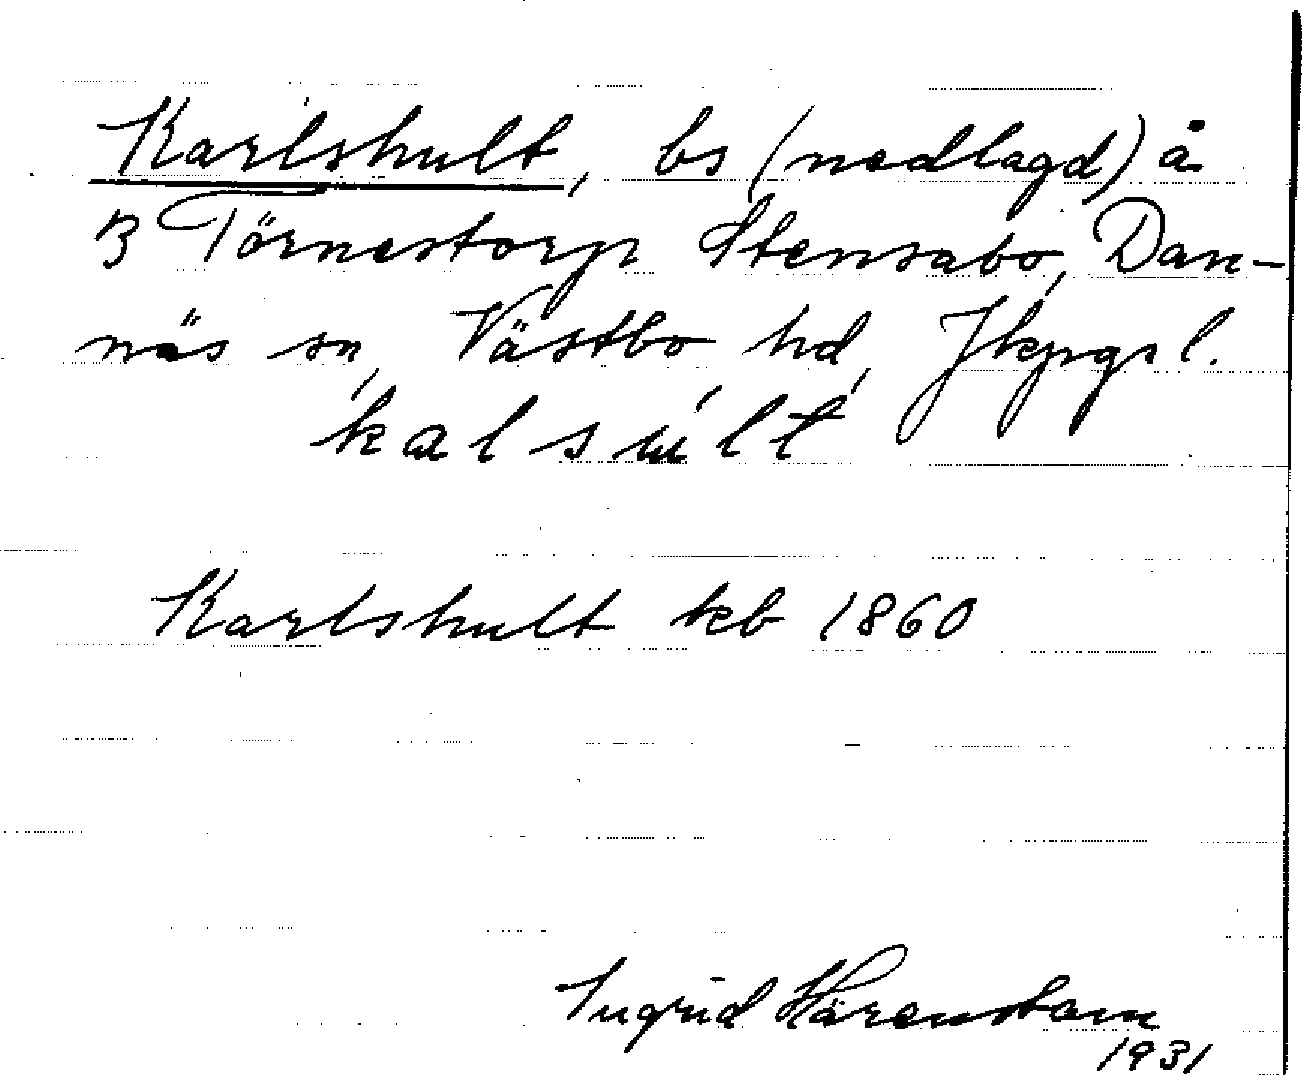 Karlshult, bs (nedlagd) å
3 Törnestorp Stensabo, Dan-
näs sn, Västbo hd, Jkpgs l.
kalsult
Karlshult kb 1860
Ingrid Härenstam
1931